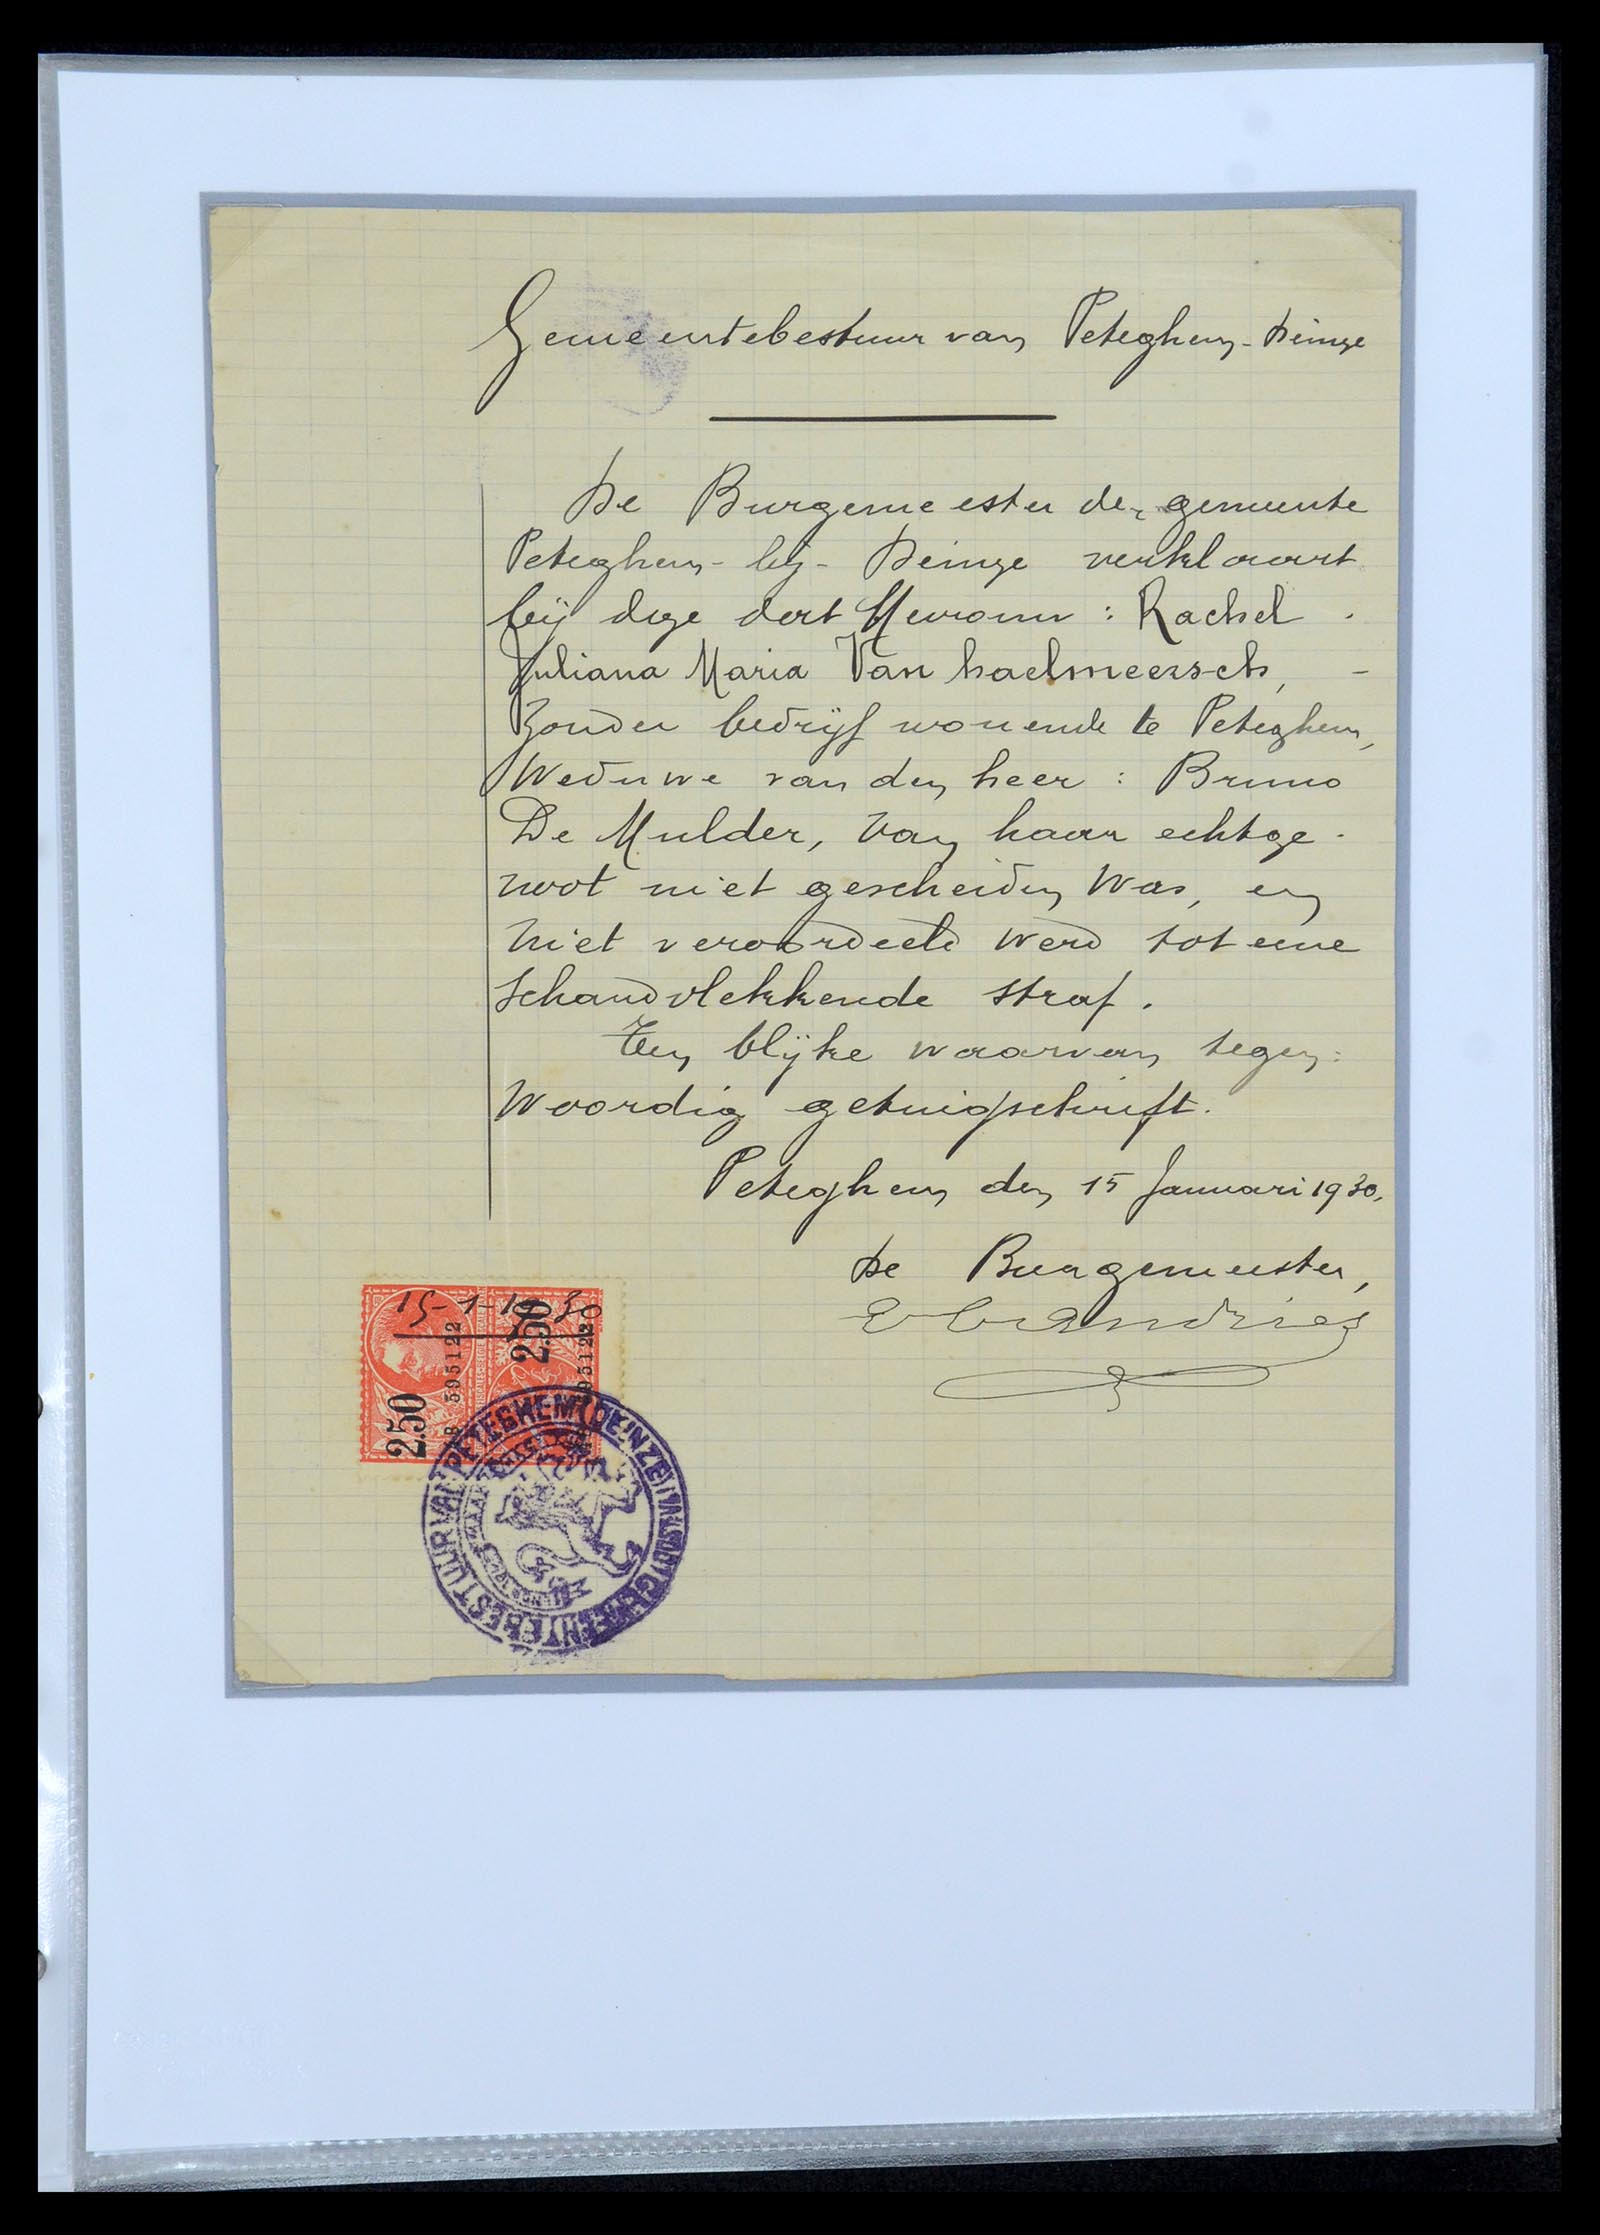 Gemeentebestuur van Peteghem-Deinze
De Burgemeester der gemeente
Peteghem-bij-Deinze verklaart
bij deze dat Mevrouw : Rachel
Juliana Maria Van haelmeersch, -
Zonder bedrijf wonende te Peteghem,
Weduwe van den heer : Bruno
De Mulder, Van haar echtge-
noot niet gescheiden Was, en
Niet veroordeeld Werd tot eene
schandvlekkende straf.
Ten blijke waarvan tegen:
Woordig getuigschrift.
Peteghem den 15 Januari 1930.
De Burgemeester,
Andries
15-1-1930
2.50
595122
2.50
595122
GEMEENTEBESTUUR VAN PETEGHEM (DEINZE)